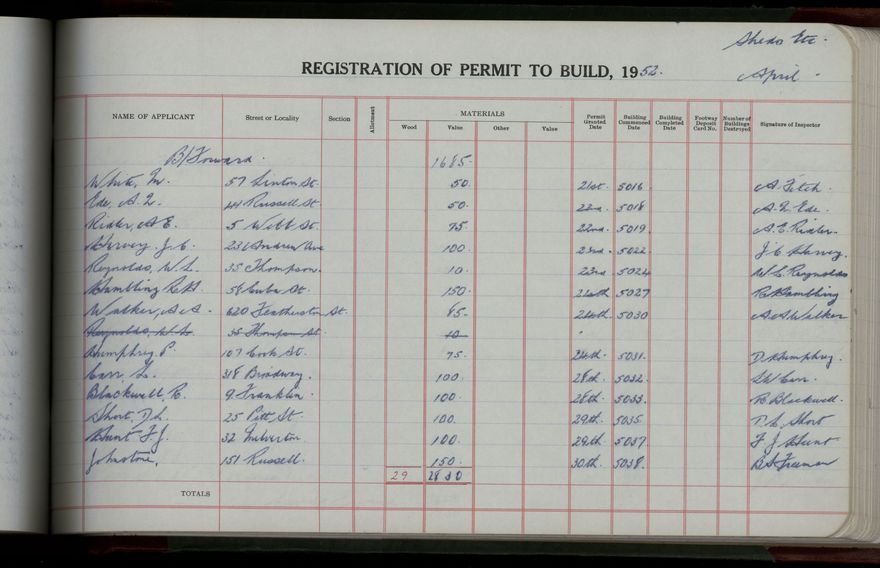 Sheds Etc.
REGISTRATION OF PERMIT TO BUILD, 1952.
April
NAME OF APPLICANT Street or Locality Section Allotment MATERIALS Wood Value Other Value Permit Granted Date Building Commenced Date Building Completed Date Footway Deposit Card No. Number of Buildings Destroyed Signature of Inspector
B/Forward. 1685.
White, M. 57 Linton St. 50. 21st. 5016. A. Fitch.
Ede, A. L. 441 Russell St. 50. 22nd. 5018 A. L. Ede.
Rider, A E. 5 Webb St. 75 22nd. 5019. A. E. Rider.
Harvey. J. C. 231 Andrew Ave 100. 23rd. 5022. J C Harvey.
Reynolds, W. L. 35 Thompson. 10. 23rd. 5024 W L Reynolds
Hambling R 58 Cuba St. 150. 24th 5027 R Hambling
Walker, A A. 620 Featherston St. 85. 24th. 5030 A A Walker
Reynolds, W. L. 35 Thompson St. 10
Humphrey P. 107 Cook St. 75. 24th. 5031. D Humphrey.
Carr L. 318 Broadway. 100. 28th. 5032. Carr.
Blackwell, R. 9 Franklin. 100. 28th. 5033. R Blackwell.
Short, D L. 25 Pitt St. 100. 29th. 5035. D. L. Short
Hunt F J. 32 Milverton 100. 29th. 5037 F. J Hunt
Johnstone, 151 Russell. 150. 30th. 5038. Freeman
29 2830
TOTALS